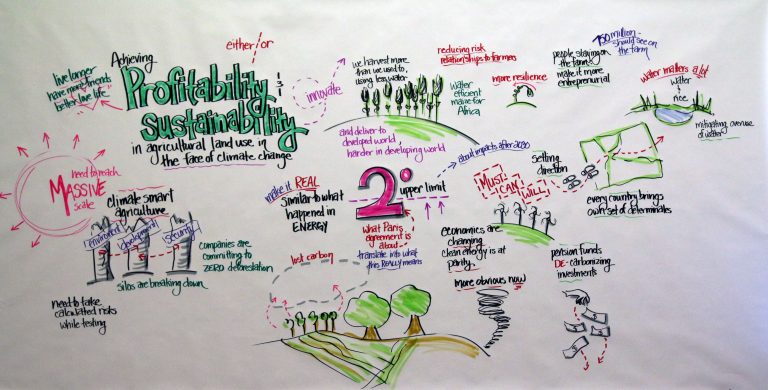 either/or
Achieving
Profitability
Sustainability
in agricultural land use in
the face of climate change
live longer
have more friends
better love life
innovate
we harvest more
than we used to,
using less water
and deliver to
developed world,
harder in developing world
reducing risk
relationships to farmers
water
efficient
maize for
Africa
more resilience
people staying on
the farm
make it more
entrepreneurial
750 million -
should see on
the farm
water matters a lot
water
rice
mitigating overuse
of water
need to reach
MASSIVE
scale
climate smart
agriculture
environment
development
security
silos are breaking down
companies are
committing to
ZERO deforestation
need to take
calculated risks
while testing
make it REAL
similar to what
happened in
ENERGY
2°
upper limit
about impacts after 2020
what Paris
agreement is
about -
translate into what
this REALLY means
lost carbon
setting
direction
MUST
CAN
WILL
economics are
changing
clean energy is at
parity
more obvious now
every country brings
own set of determinates
pension funds
DE-carbonizing
investments